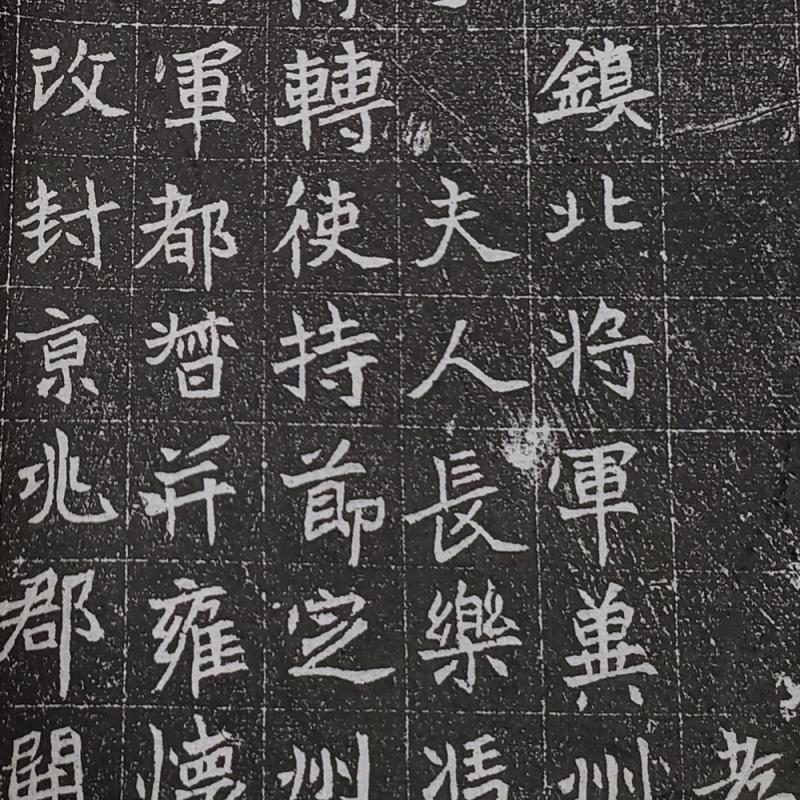 考
鎮北將軍冀州
夫人長樂馮
轉使持節定州
軍都督并雍懷
改封京兆郡開